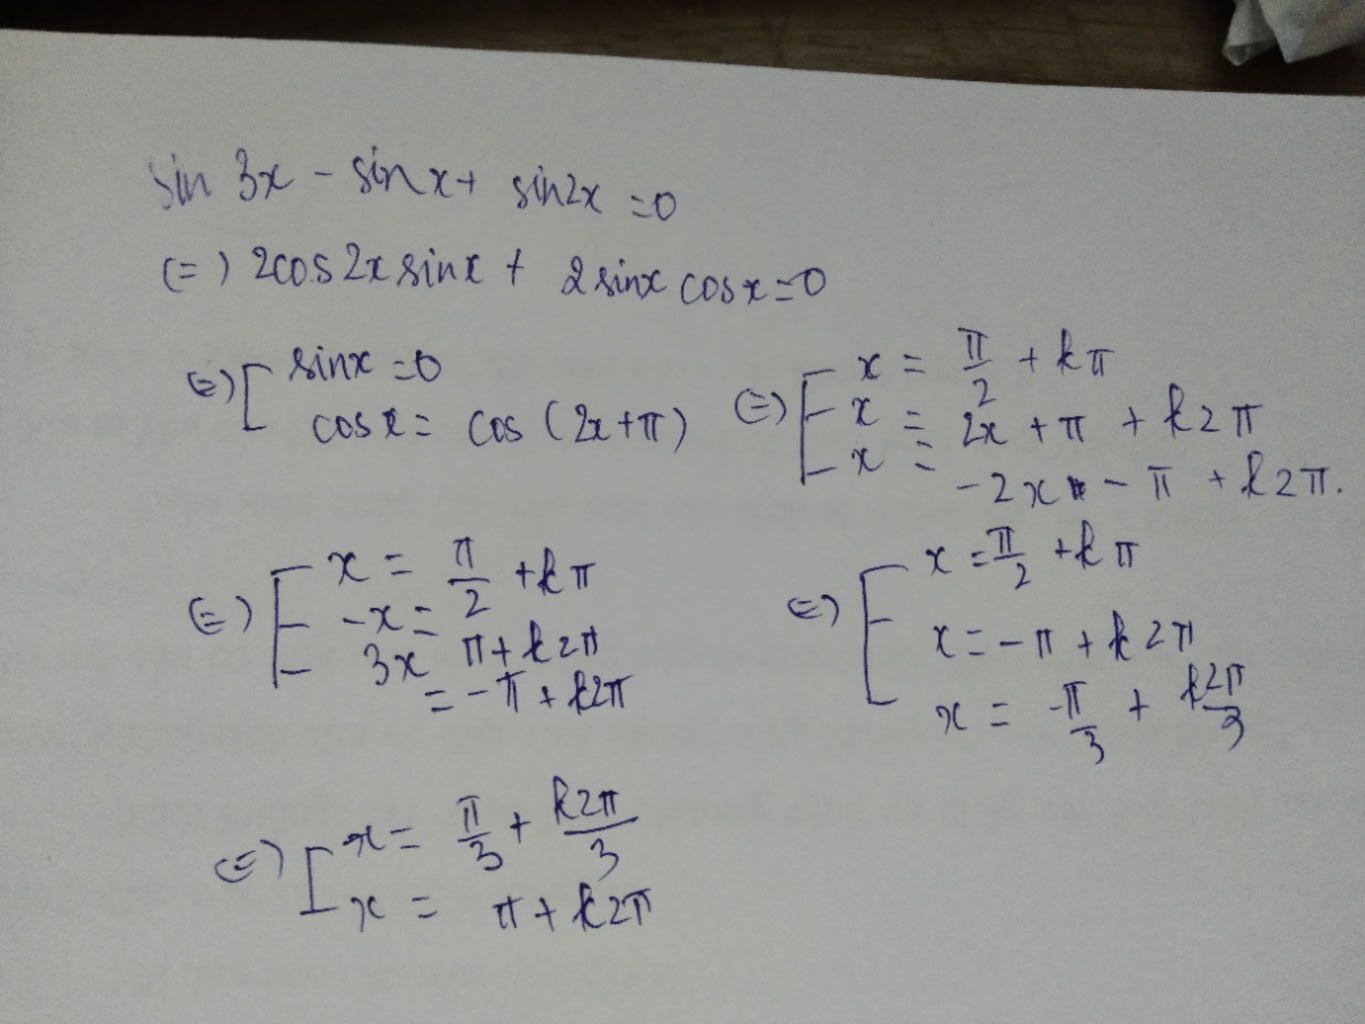 sin 3x - sin x + sin2x = 0
(=) 2cos 2x sin x + 2 sinx cos x = 0
(=) [ sinx = 0
cos x = cos (2x + π)
(=) [ x = π/2 + kπ
x = 2x + π + k2π
x = -2x - π + k2π.
(=) [ x = π/2 + kπ
-x = π + k2π
3x = -π + k2π
(=) [ x = π/2 + kπ
x = -π + k2π
x = -π/3 + k2π/3
(=) [ x = π/3 + k2π/3
x = π + k2π